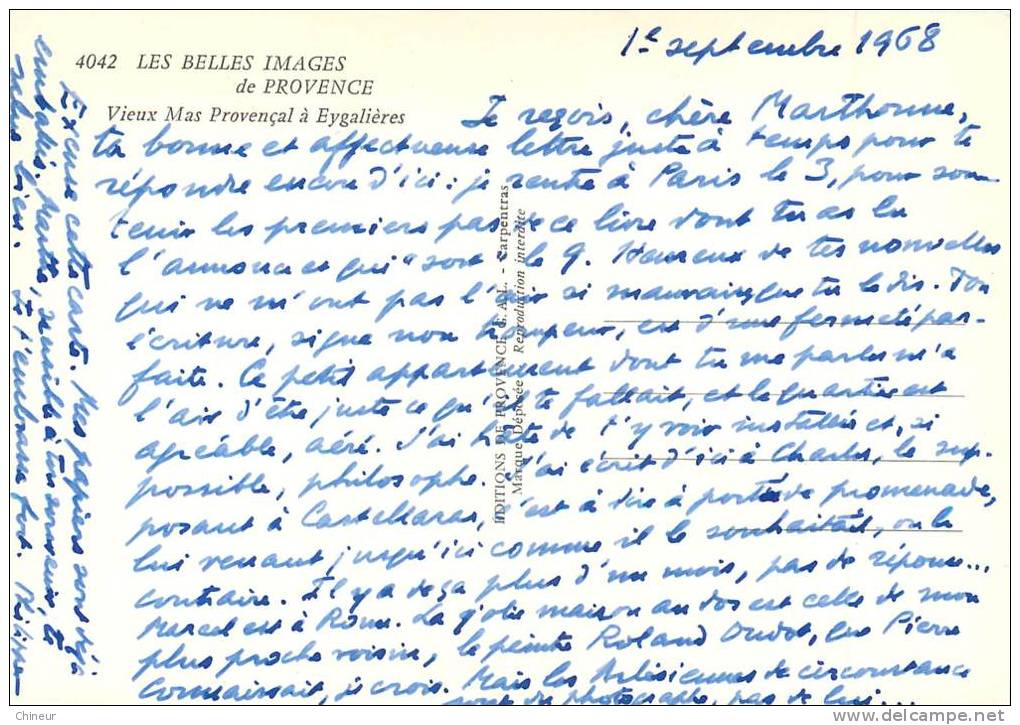 4042 LES BELLES IMAGES
de PROVENCE
Vieux Mas Provençal à Eygalières
1er septembre 1968
Je reçois, chère Marthonne,
ta bonne et affectueuse lettre juste à temps pour te
répondre encore d'ici : je rentre à Paris le 3, pour sou-
tenir les premiers pas de ce livre dont tu as lu
l'annonce et qui "sort" le 9. Heureux de tes nouvelles
qui ne m'ont pas l'air si mauvaises que tu le dis. Ton
écriture, signe non trompeur, est d'une fermeté par-
faite. Ce petit appartement dont tu me parles m'a
l'air d'être juste ce qu'il te fallait, et le quartier est
agréable, aéré. J'ai hâte de t'y voir installée et, si
possible, philosophe. J'ai écrit d'ici à Charles, le sup-
posant à Castellaras, c'est à dire à portée de promenade,
lui venant jusqu'ici comme il le souhaitait, ou le
contraire. Il y a de ça plus d'un mois, pas de réponse...
Marcel est à Rome. La jolie maison au dos est celle de mon
plus proche voisin, le peintre Roland Oudot, que Pierre
connaissait, je crois. Mais les Arlésiennes de circonstance
sont du photographe, pas de lui...
Excuse cette carte. Mes papiers sont déjà
emballés. Marthe, sensible à ton souvenir, te
salue bien. Je t'embrasse fort.
EDITIONS DE PROVENCE S.A.L. - Carpentras
Marque Déposée - Reproduction interdite
Chineur
delcampe.net